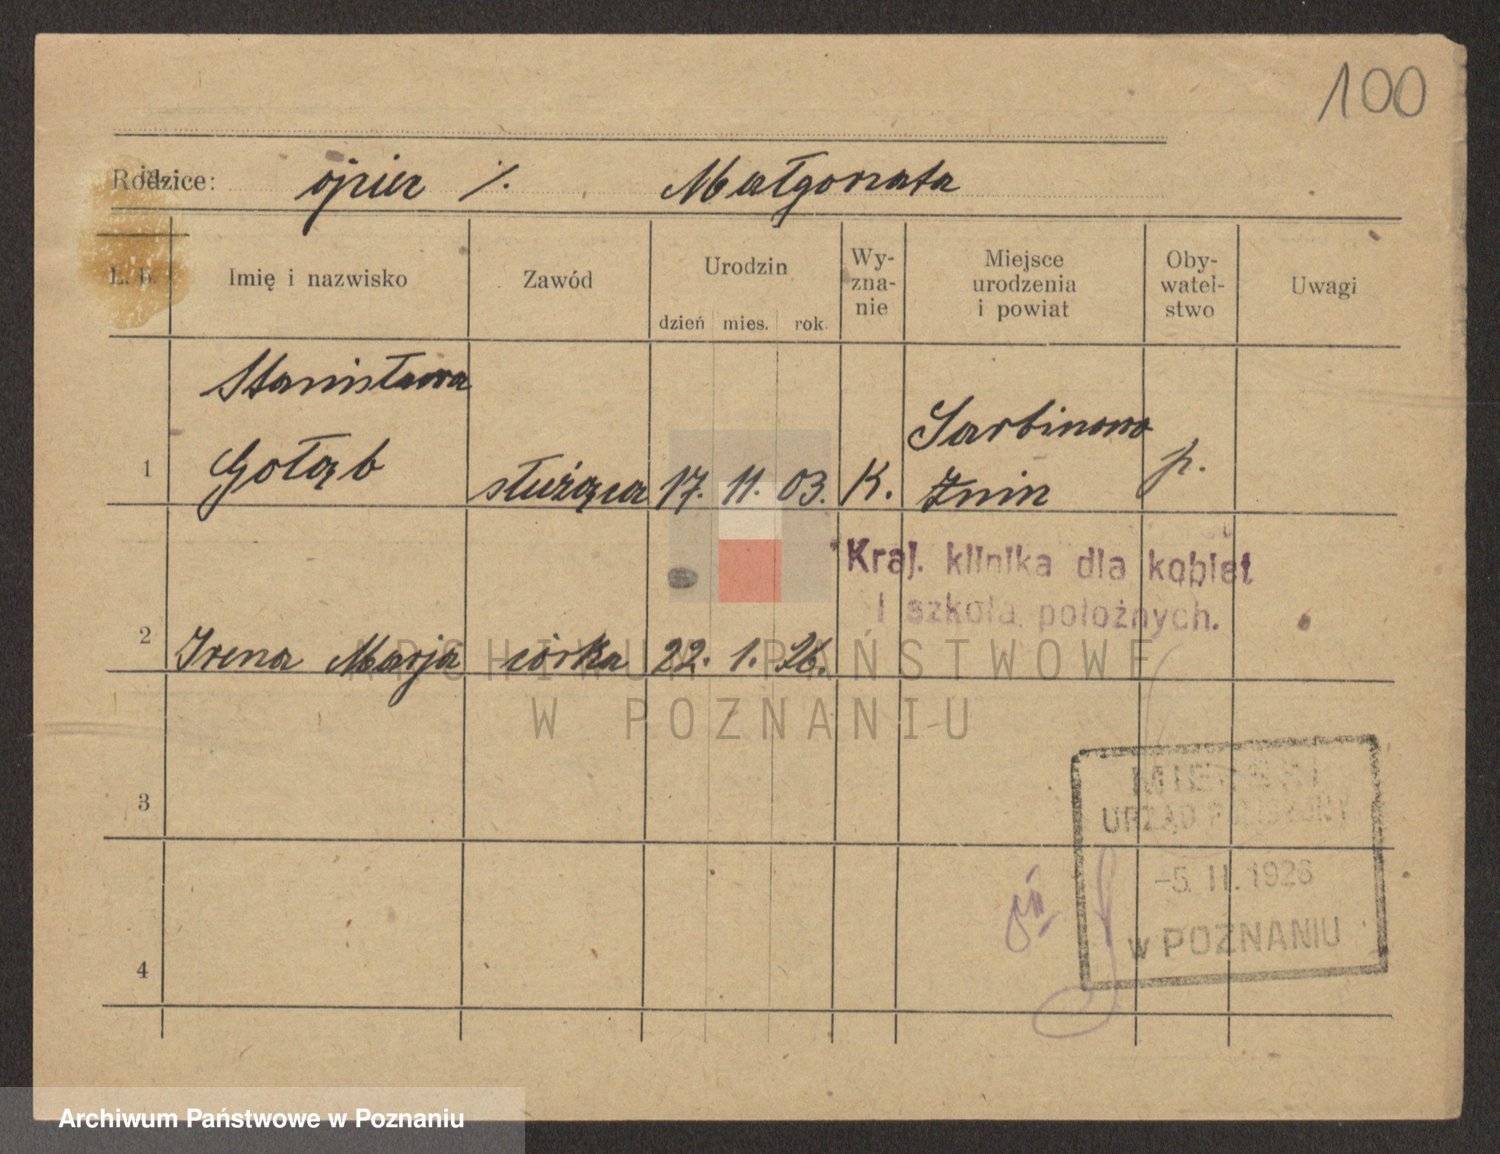 100
Rodzice: ojciec ./. Małgorzata
L. b. Imię i nazwisko Zawód Urodzin dzień mies. rok. Wy-zna-nie Miejsce urodzenia i powiat Oby-watel-stwo Uwagi
Stanisława
1 Gołąb służąca 17. 11. 03. K. Sarbinowo Żnin p.
Kraj. klinika dla kobiet
i szkoła położnych.
2 Irena Marja córka 22. 1. 26.
ARCHIWUM PAŃSTWOWE
W POZNANIU
3
MIEJSKI
URZĄD
-5. II. 1926
w POZNANIU
4
Archiwum Państwowe w Poznaniu